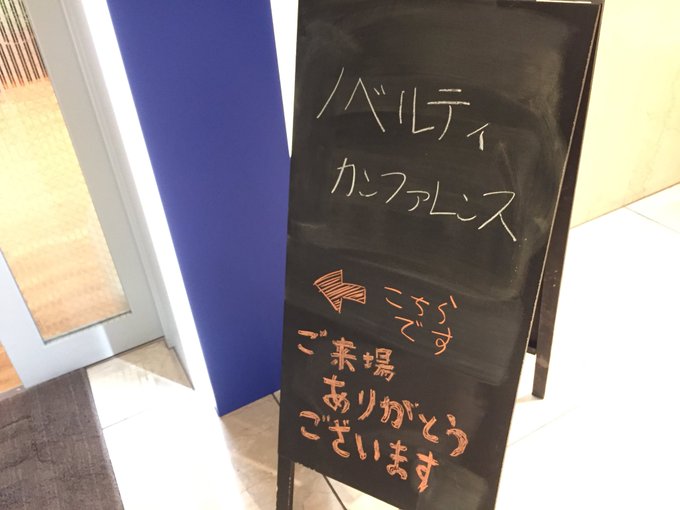 ノベルティ
カンファレンス
こちら
です
ご来場
ありがとう
ございます